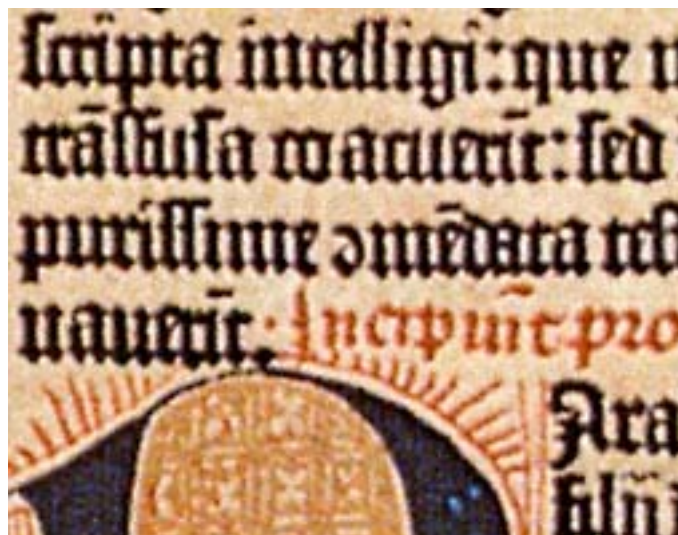 scripta intelligi: que
trãsfusa coacuerit: sed
purissime ɔmēdata test
uauerit. Incipiūt pro
Ara
filij